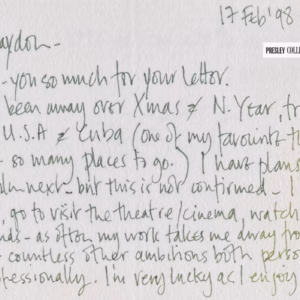 17 Feb '98
PRESLEY COLLE
aydon -
- you so much for your letter.
been away over Xmas & N. Year, fr
U.S.A & Cuba (one of my favourite th
- so many places to go.) I have plans
next - but this is not confirmed - I
, go to visit the theatre/cinema, watch
nds - as often my work takes me away fro
countless other ambitions both perso
fessionally. I'm very lucky as I enjoy